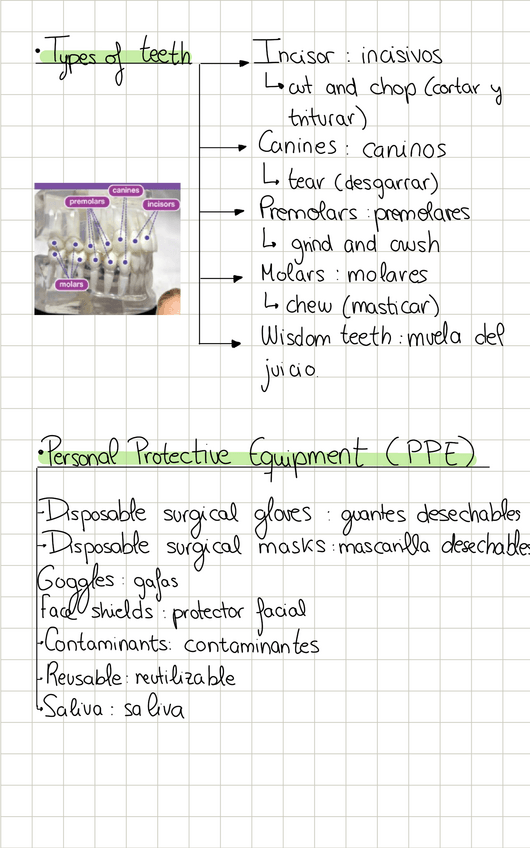 • Types of teeth
Incisor : incisivos
cut and chop (cortar y
triturar)
Canines : caninos
tear (desgarrar)
Premolars : premolares
grind and crush
Molars : molares
chew (masticar)
Wisdom teeth : muela del
juicio.
canines
premolars
incisors
molars
• Personal Protective Equipment (PPE)
-Disposable surgical gloves : guantes desechables
-Disposable surgical masks : mascarilla desechables
Goggles : gafas
Face shields : protector facial
-Contaminants : contaminantes
-Reusable : reutilizable
Saliva : saliva